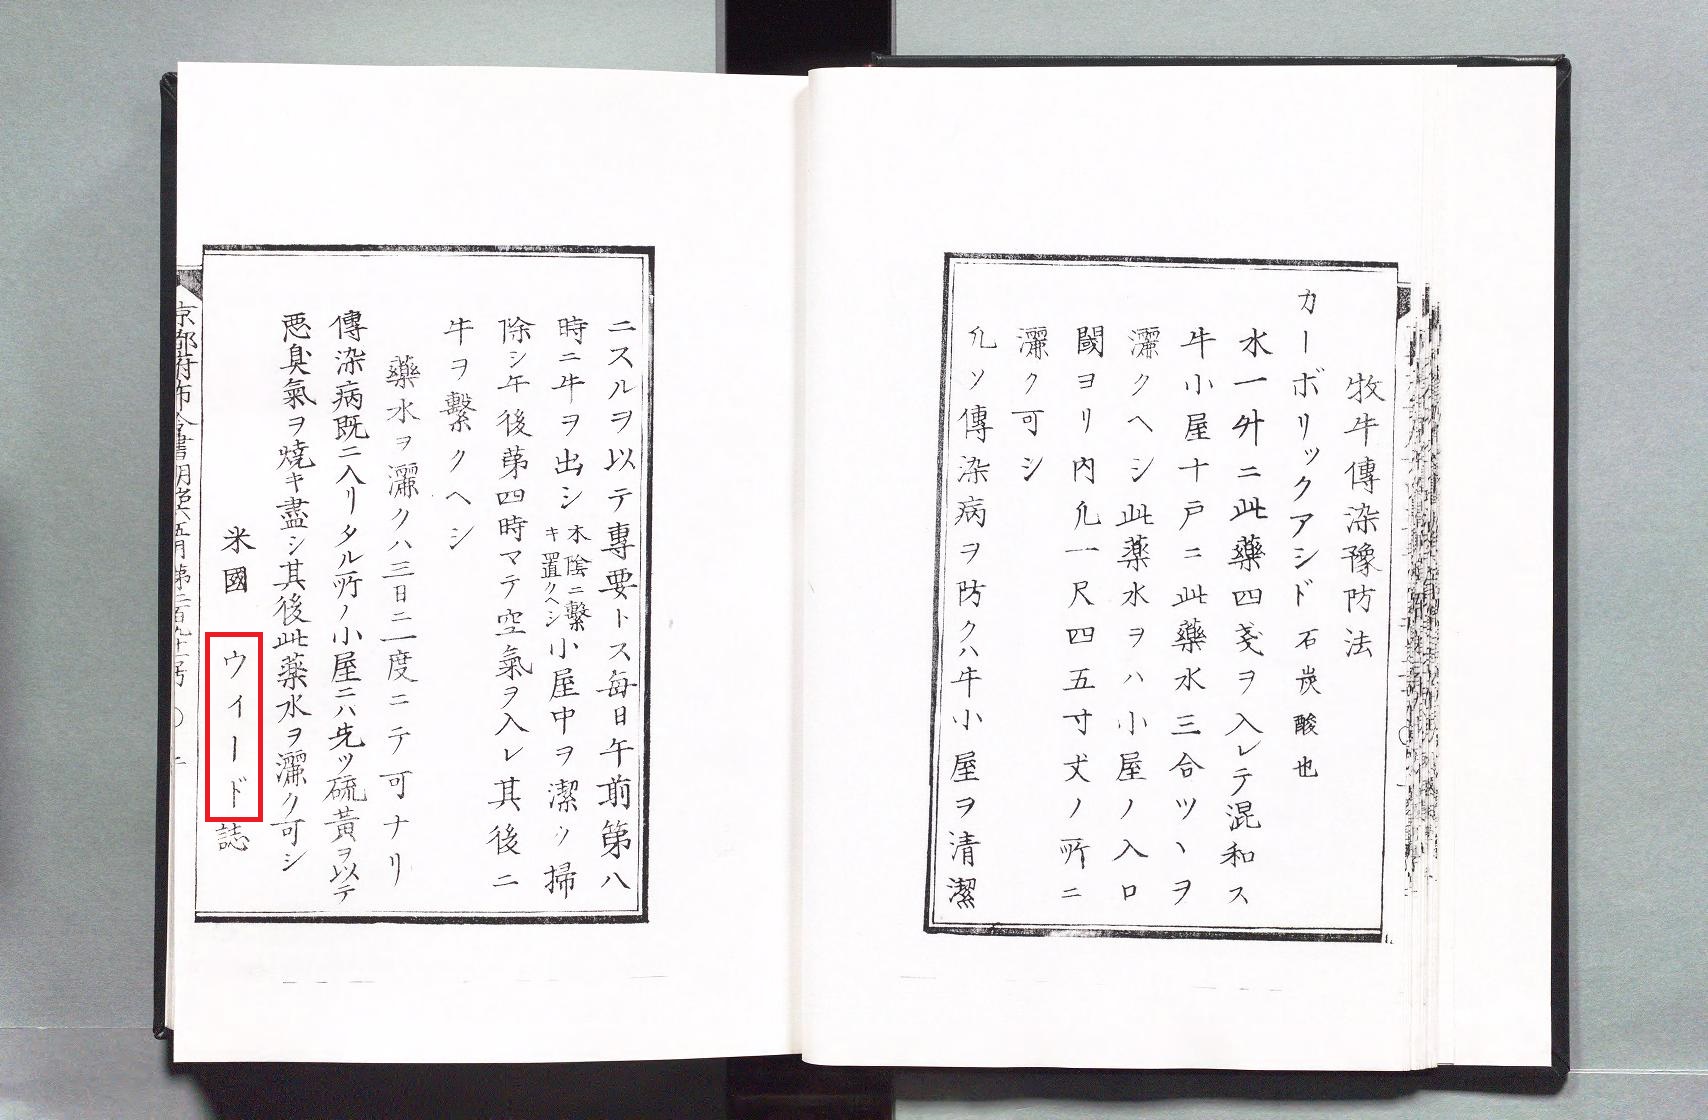 牧牛傳染豫防法
カーボリックアシド 石炭酸也
水一升ニ此藥四戔ヲ入レテ混和ス
牛小屋十戸ニ此藥水三合ツヽヲ
灑クヘシ此薬水ヲハ小屋ノ入口
閾ヨリ内凢一尺四五寸丈ノ所ニ
灑ク可シ
凢ソ傳染病ヲ防クハ牛小屋ヲ清潔
ニスルヲ以テ專要トス毎日午前第八
時ニ牛ヲ出シ木陰ニ繋キ置クヘシ小屋中ヲ潔ク掃
除シ午後第四時マテ空氣ヲ入レ其後ニ
牛ヲ繋クヘシ
藥水ヲ灑クハ三日ニ一度ニテ可ナリ
傳染病既ニ入リタル所ノ小屋ニハ先ツ硫黃ヲ以テ
悪臭氣ヲ焼キ盡シ其後此薬水ヲ灑ク可シ
米國 ウィード誌
京都府布令書明治六五月第二百九十一号